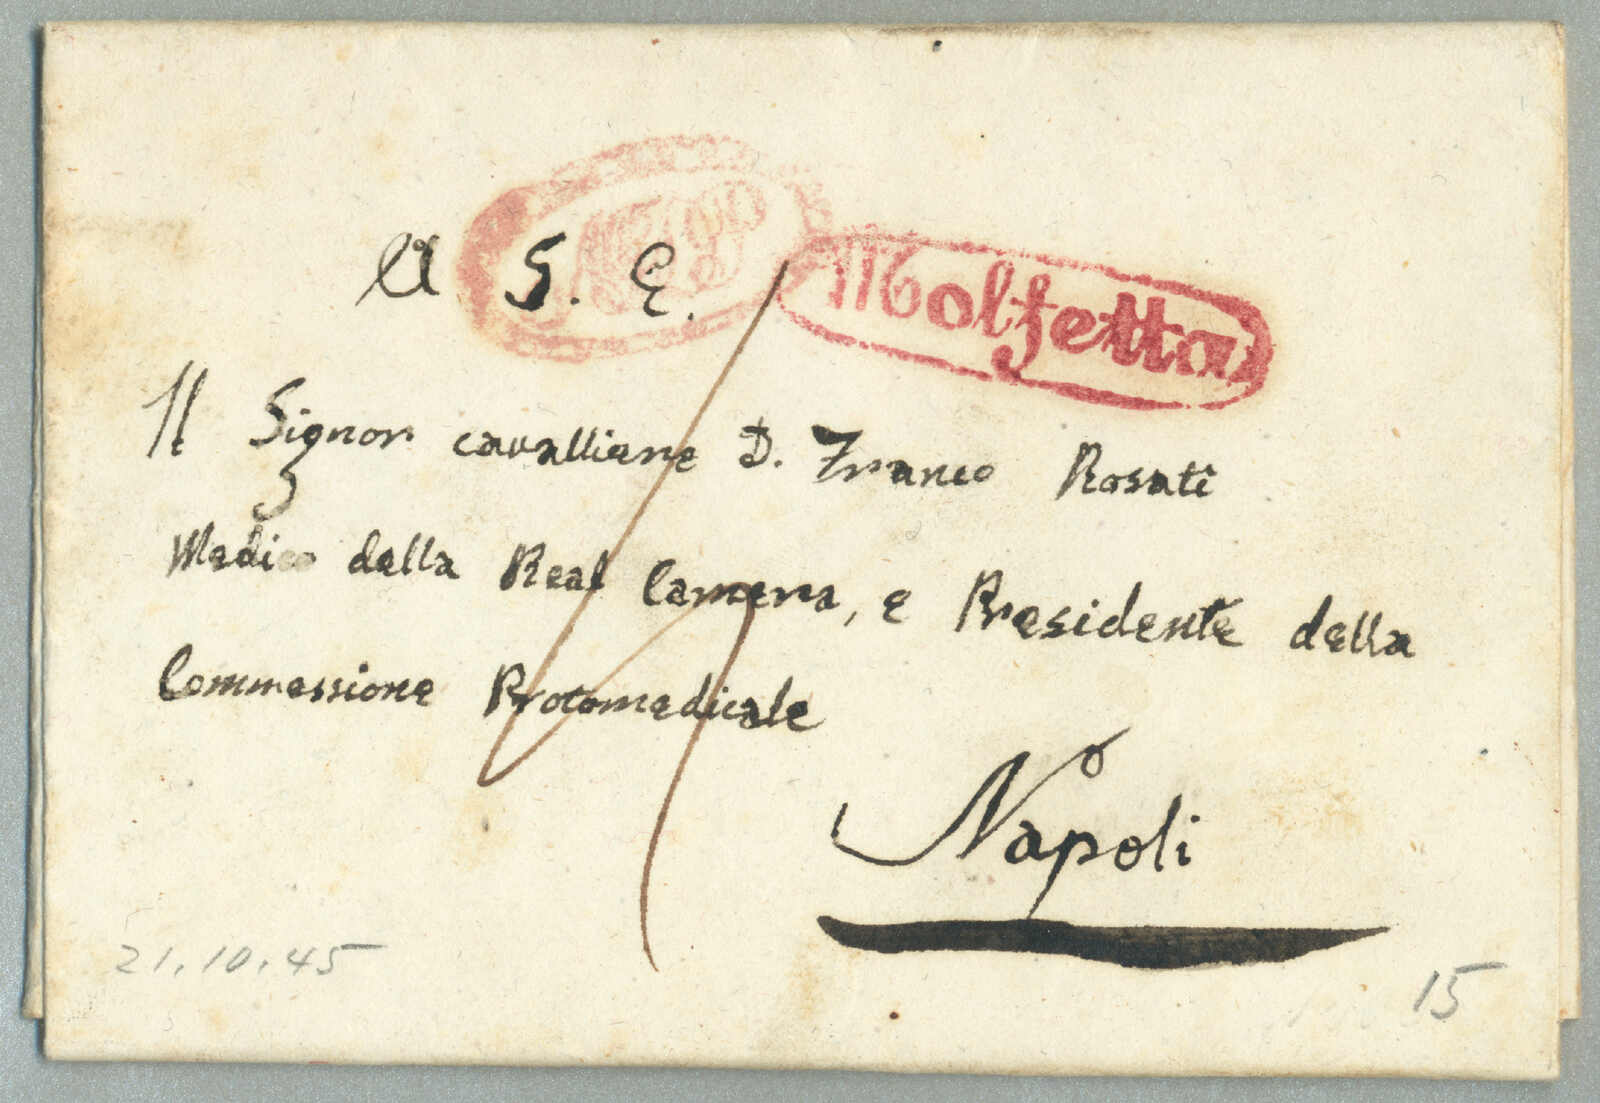 A S. E.
Molfetta
Il Signor cavalliere D. Franco Rosati
Medico della Real Camera, e Presidente della
Commessione Protomedicale
Napoli
21.10.45
15